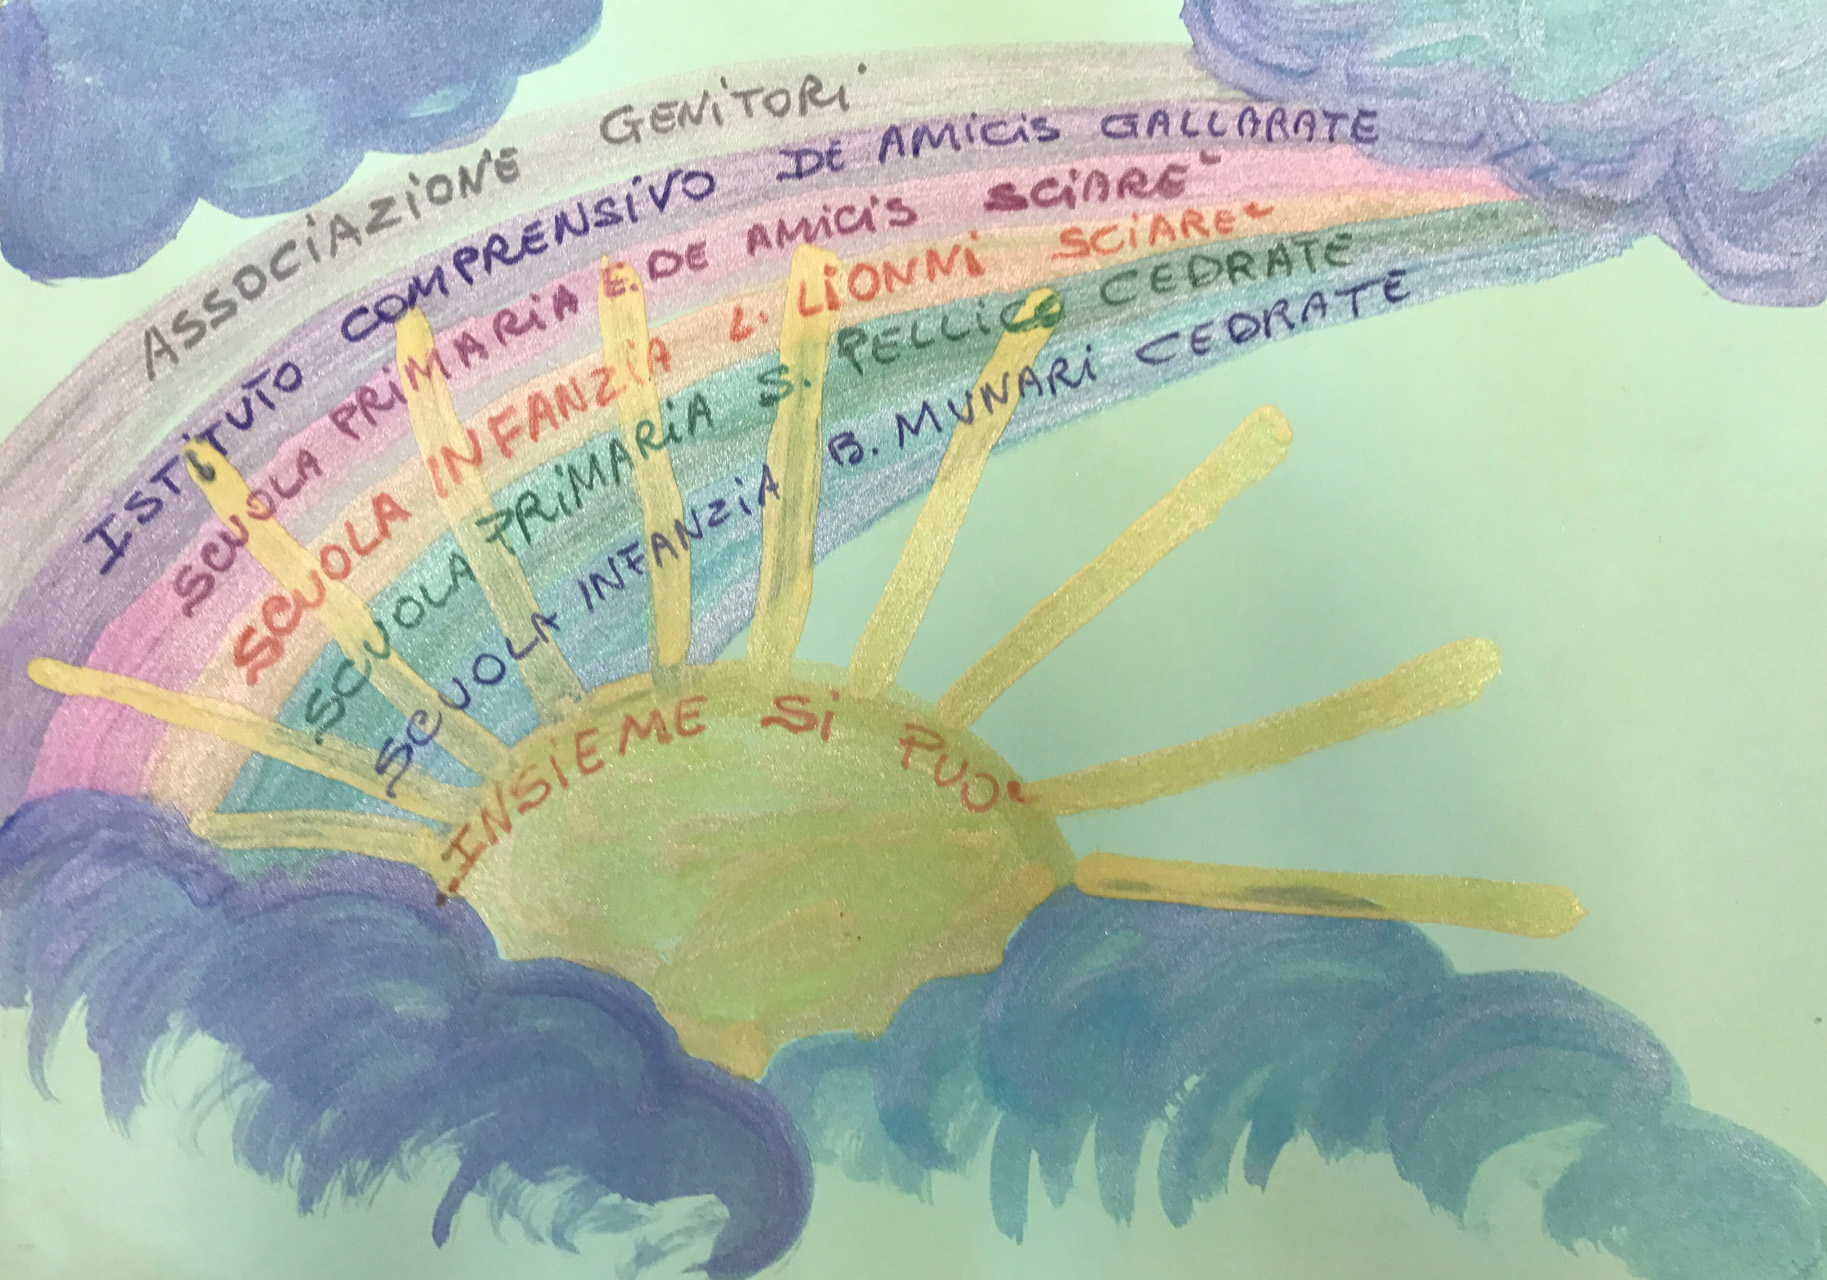 ASSOCIAZIONE GENITORI
ISTITUTO COMPRENSIVO DE AMICIS GALLARATE
SCUOLA PRIMARIA E. DE AMICIS SCIARE'
SCUOLA INFANZIA L. LIONNI SCIARE'
SCUOLA PRIMARIA S. PELLICO CEDRATE
SCUOLA INFANZIA B. MUNARI CEDRATE
INSIEME SI PUO'